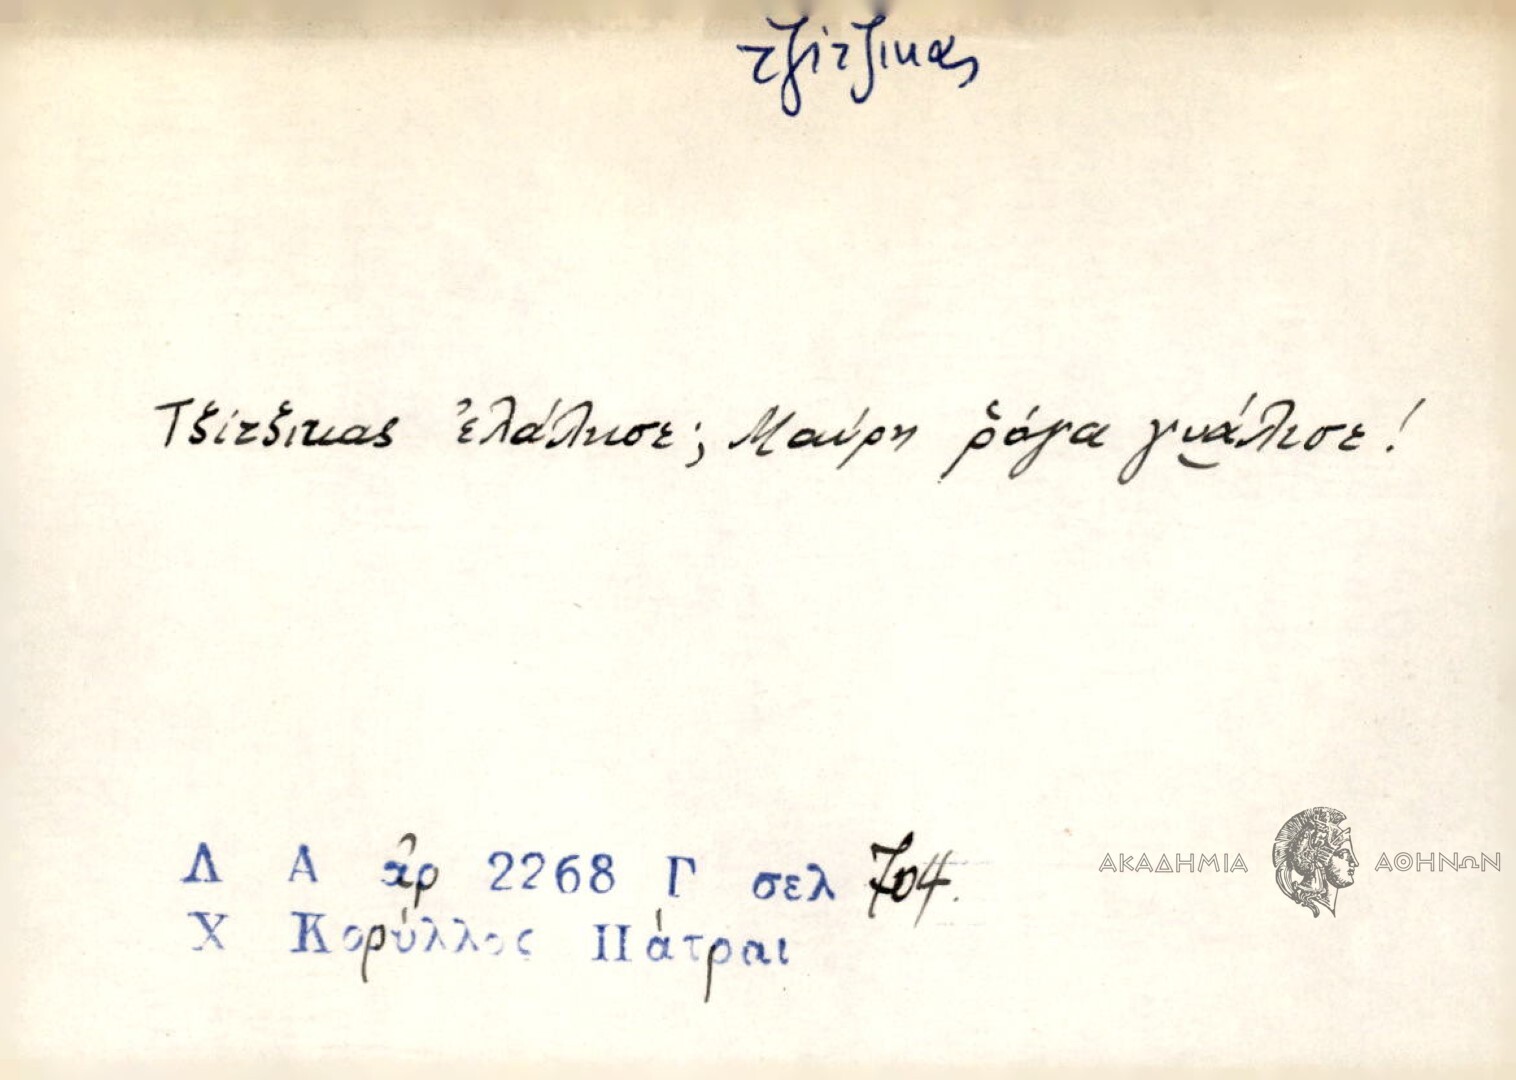 τζίτζικας
Τζίτζικας ἐλάλησε; Μαύρη ῥόγα γυάλισε!
Λ Α ἀρ 2268 Γ σελ 704.
ΑΚΑΔΗΜΙΑ ΑΘΗΝΩΝ
Χ Κορύλλος Πάτραι